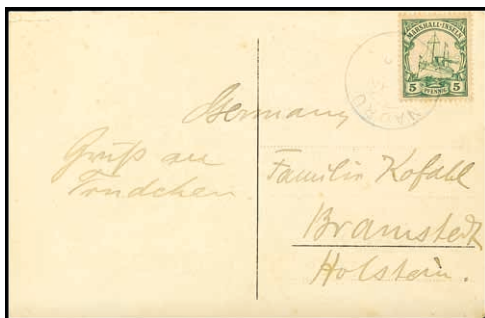 MARSHALL-INSELN
5 PFENNIG 5
NAURU
Germany
Gruß an
Trudchen
Familie Kofahl
Bramstedt
Holstein.